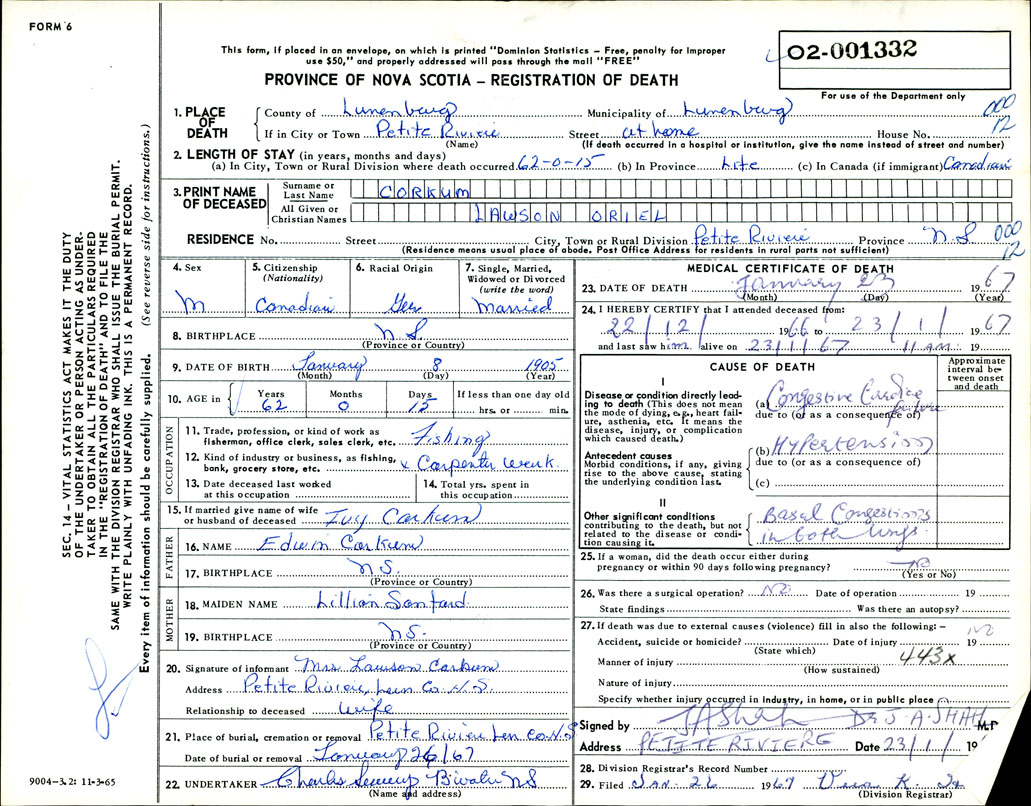 FORM 6
This form, if placed in an envelope, on which is printed "Dominion Statistics – Free, penalty for improper
use $50," and properly addressed will pass through the mail "FREE"
PROVINCE OF NOVA SCOTIA – REGISTRATION OF DEATH
02-001332
For use of the Department only
000
12
1. PLACE OF DEATH
County of Lunenburg Municipality of Lunenburg
If in City or Town Petite Riviere Street at home House No.
(Name) (If death occurred in a hospital or institution, give the name instead of street and number)
2. LENGTH OF STAY (in years, months and days)
(a) In City, Town or Rural Division where death occurred 62-0-15 (b) In Province Life (c) In Canada (if immigrant) Canadian
3. PRINT NAME OF DECEASED
Surname or Last Name CORKUM
All Given or Christian Names LAWSON ORIEL
RESIDENCE No. Street City, Town or Rural Division Petite Riviere Province N S 000
12
(Residence means usual place of abode. Post Office Address for residents in rural parts not sufficient)
4. Sex M
5. Citizenship (Nationality) Canadian
6. Racial Origin Ger
7. Single, Married, Widowed or Divorced (write the word) Married
8. BIRTHPLACE N S
(Province or Country)
9. DATE OF BIRTH January 8 1905
(Month) (Day) (Year)
10. AGE in Years Months Days If less than one day old
62 0 15 hrs. or min.
OCCUPATION
11. Trade, profession or kind of work as
fisherman, office clerk, sales clerk, etc. Fishing
12. Kind of industry or business, as fishing,
bank, grocery store, etc. x Carpenter work
13. Date deceased last worked
at this occupation
14. Total yrs. spent in
this occupation
15. If married give name of wife
or husband of deceased Ivy Corkum
FATHER
16. NAME Edwin Corkum
17. BIRTHPLACE N S.
(Province or Country)
MOTHER
18. MAIDEN NAME Lillian Sanford
19. BIRTHPLACE N S.
(Province or Country)
20. Signature of informant Mrs Lawson Corkum
Address Petite Riviere, Lun Co. N. S.
Relationship to deceased Wife
21. Place of burial, cremation or removal Petite Riviere Lun Co N.S
Date of burial or removal January 26/67
22. UNDERTAKER Charles N S
(Name and address)
MEDICAL CERTIFICATE OF DEATH
23. DATE OF DEATH January 23 1967
(Month) (Day) (Year)
24. I HEREBY CERTIFY that I attended deceased from:
22/12/ 1966 to 23/1/ 1967
and last saw him alive on 23/1/67 11 AM 19
CAUSE OF DEATH
Approximate interval between onset and death
I
Disease or condition directly leading
to death (This does not mean
the mode of dying, e.g., heart failure,
asthenia, etc. It means the
disease, injury, or complication
which caused death.)
(a) Congestive Cardiac failure
due to (or as a consequence of)
Antecedent causes
Morbid conditions, if any, giving
rise to the above cause, stating
the underlying condition last.
(b) Hypertension
due to (or as a consequence of)
(c)
II
Other significant conditions
contributing to the death, but not
related to the disease or condition
causing it.
Basal Congestions
in both lungs.
25. If a woman, did the death occur either during
pregnancy or within 90 days following pregnancy? No
(Yes or No)
26. Was there a surgical operation? No Date of operation 19
State findings Was there an autopsy?
27. If death was due to external causes (violence) fill in also the following: –
Accident, suicide or homicide? Date of injury 19
No
(State which)
Manner of injury 443x
(How sustained)
Nature of injury
Specify whether injury occurred in Industry, in home, or in public place
Signed by J A Shah Dr J. A. SHAH M.D
Address PETITE RIVIERE Date 23/1/ 19
28. Division Registrar's Record Number
29. Filed Jan. 26 1967
(Division Registrar)
SEC. 14 – VITAL STATISTICS ACT MAKES IT THE DUTY
OF THE UNDERTAKER OR PERSON ACTING AS UNDER-
TAKER TO OBTAIN ALL THE PARTICULARS REQUIRED
IN THE "REGISTRATION OF DEATH" AND TO FILE THE
SAME WITH THE DIVISION REGISTRAR WHO SHALL ISSUE THE BURIAL PERMIT.
WRITE PLAINLY WITH UNFADING INK. THIS IS A PERMANENT RECORD.
Every item of information should be carefully supplied. (See reverse side for instructions.)
9004-3.2: 11-3-65